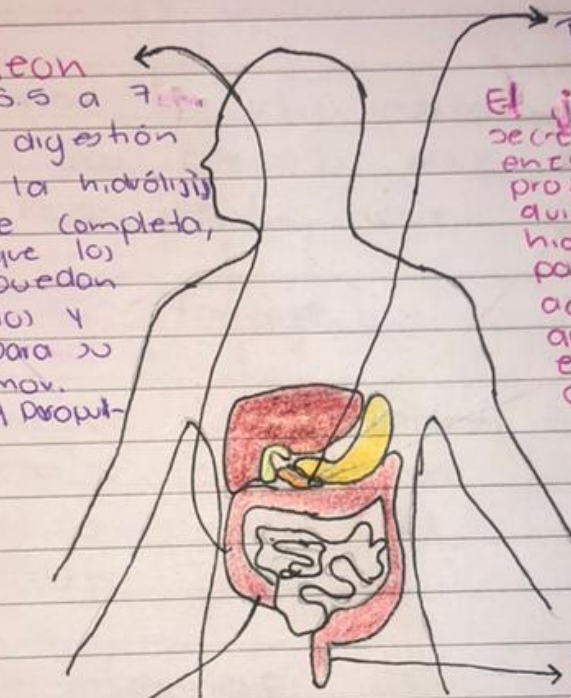 eon
5.5 a 7
digestión
la hidrólisis
e completa,
que los
puedan
os y
para su
mov.
Propul-
El j
secre
enz
pro
qui
hid
pa
ac
a
e